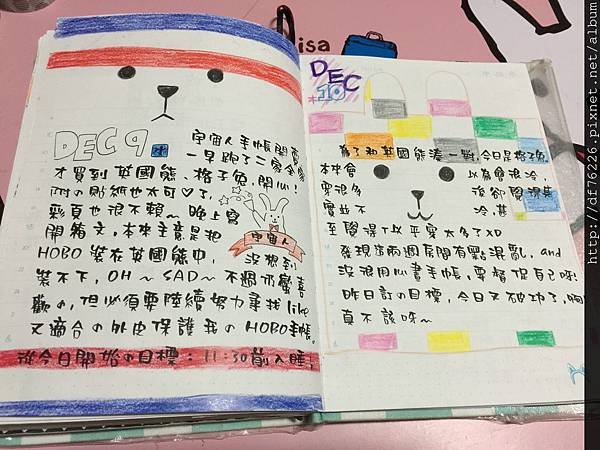 isa
DEC 9 水
宇宙人手帳開賣
一早跑了二家全家
才買到英國熊、格子兔，開心！
附の貼紙也太可♡了，
彩頁也很不賴～ 晚上寫
開箱文，本來主意是把
HOBO 裝在英國熊中，沒想到
裝不下，OH～ SAD～ 不過仍蠻喜
歡の，但必須要陸續努力尋找 like
又適合の外皮保護我の HOBO手帳。
宇宙人
從今日開始の目標：11:30前入睡
DEC
10
為了和英國熊湊一對，今日是格子兔
本來會以為會很冷，
實很多後卻覺得其
實並不冷，甚
至覺得T以平穿太多了XD
發現這兩週房間有點混亂，and
沒很用心畫手帳，要督促自己呀！
昨日訂の目標，今日又破功了，啊
真不該呀～
http://df76226.pixnet.net/album